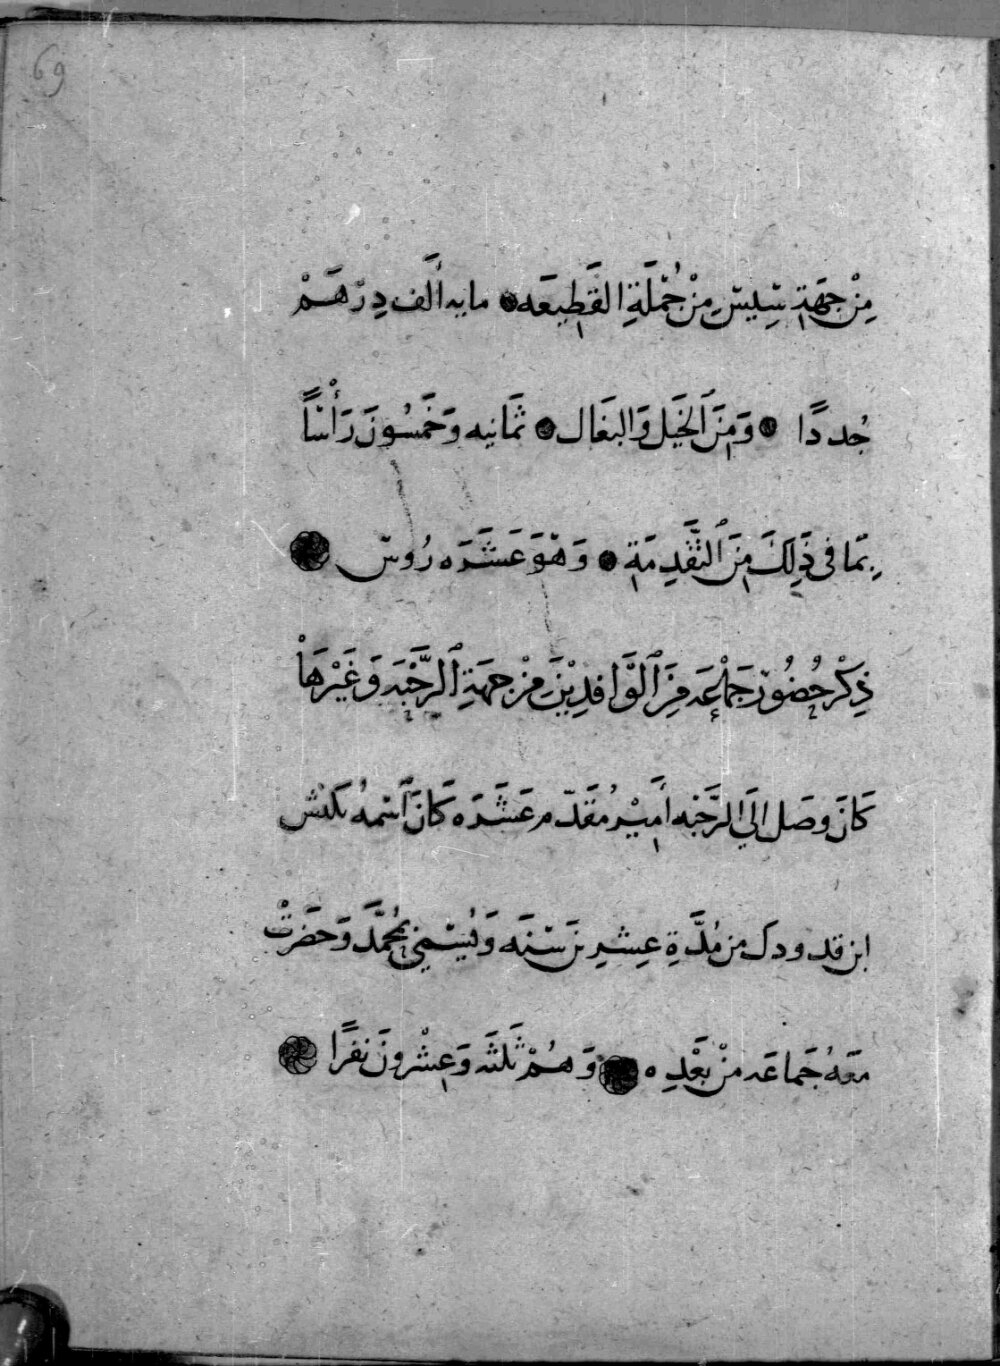 69
مِنْ جِهَةِ سِيسَ مِنْ جُمْلَةِ القَطِيعَه مايه أَلف دِرْهَمْ
جُددًا وَمِنَ ٱلخَيل وَالبغَال ثمَانيه وَخَمسُونَ رَأْسًا
بمَا فى ذَلِكَ مِنَ ٱلتَّقْدِمَةِ وَهوَ عَشَرَه رُوس
ذِكْر حُضُور جَمَاعَه مِنَ ٱلوَافدِيْنَ مِنْ جهَةِ ٱلرَّحْبَه وَغَيْرهَا
كَانَ وصَل الَى الرَّحْبَه أَمِيْر مُقَدّم عَشَرَه كَانَ ٱسْمهُ
ابن من مُدَّةِ عِشرِينَ سَنَه وَيُسَمَّى بمُحَمَّد وَحضَرتْ
مَعَهُ جَمَاعَه مِنْ بَعْدِه وَهُمْ ثَلثَه وَعِشْرونَ نفَرًا